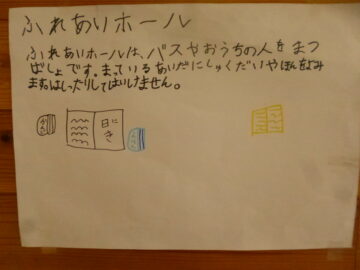 ふれあいホール
ふれあいホールは、バスやおうちの人をまつ
ばしょです。まっているあいだにしゅくだいやほんをよみ
ますはしったりしてはいけません。
日
にき